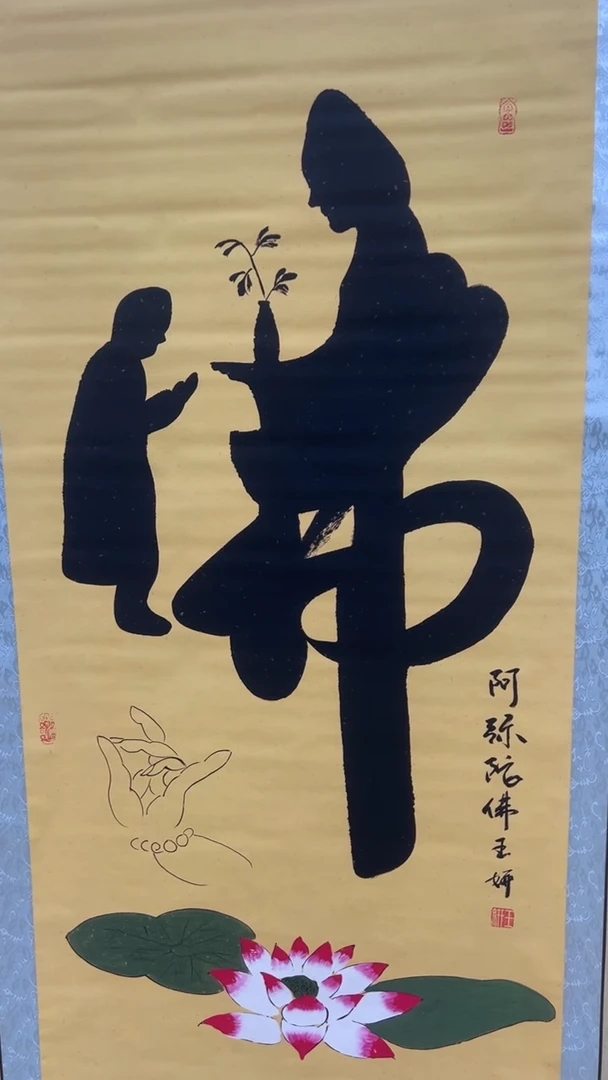 佛
阿弥陀佛王妍